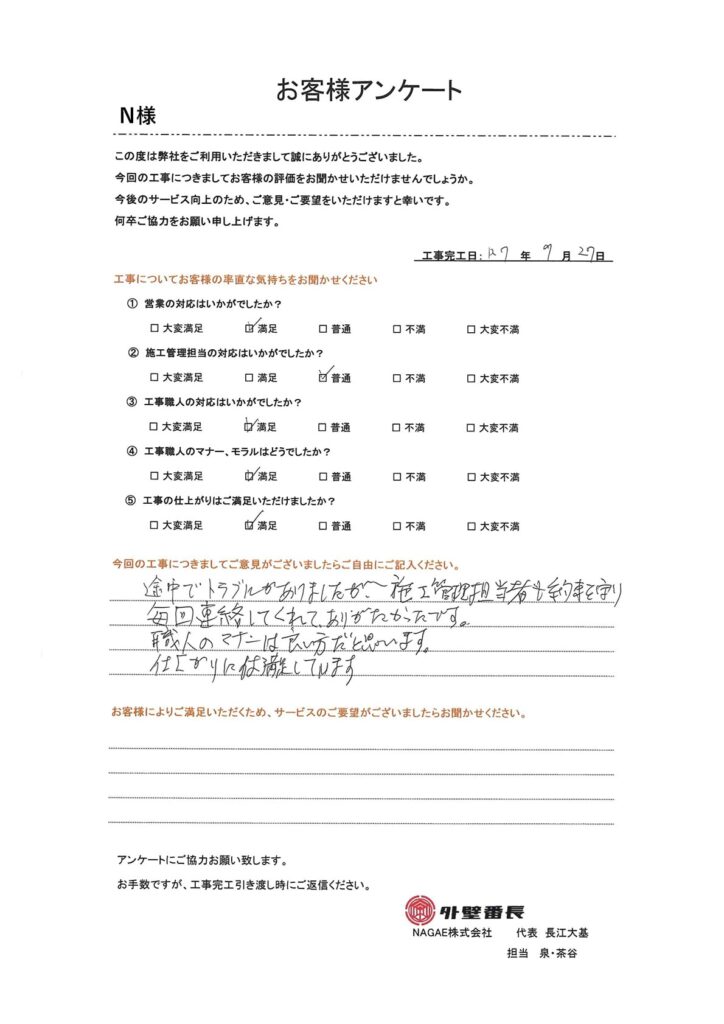 お客様アンケート
N様
この度は弊社をご利用いただきまして誠にありがとうございました。
今回の工事につきましてお客様の評価をお聞かせいただけませんでしょうか。
今後のサービス向上のため、ご意見・ご要望をいただけますと幸いです。
何卒ご協力をお願い申し上げます。
工事完工日: R7 年 9 月 27日
工事についてお客様の率直な気持ちをお聞かせください
① 営業の対応はいかがでしたか？
□ 大変満足 ☑ 満足 □ 普通 □ 不満 □ 大変不満
② 施工管理担当の対応はいかがでしたか？
□ 大変満足 □ 満足 ☑ 普通 □ 不満 □ 大変不満
③ 工事職人の対応はいかがでしたか？
□ 大変満足 ☑ 満足 □ 普通 □ 不満 □ 大変不満
④ 工事職人のマナー、モラルはどうでしたか？
□ 大変満足 ☑ 満足 □ 普通 □ 不満 □ 大変不満
⑤ 工事の仕上がりはご満足いただけましたか？
□ 大変満足 ☑ 満足 □ 普通 □ 不満 □ 大変不満
今回の工事につきましてご意見がございましたらご自由にご記入ください。
途中でトラブルがありましたが、施工管理担当者も約束を守り
毎回連絡してくれて、ありがたかったです。
職人のマナーは良い方だと思います。
仕上がりには満足しています
お客様によりご満足いただくため、サービスのご要望がございましたらお聞かせください。
アンケートにご協力お願い致します。
お手数ですが、工事完工引き渡し時にご返信ください。
外壁番長
NAGAE株式会社 代表 長江大基
担当 泉・茶谷